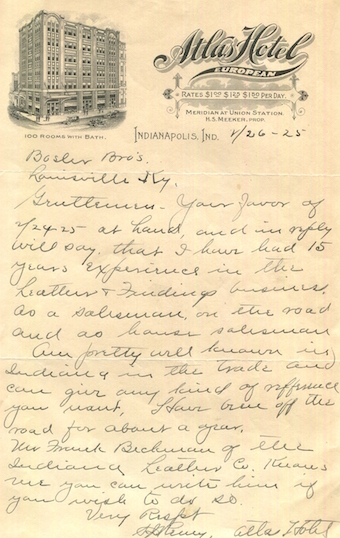 Atlas Hotel
EUROPEAN
RATES $1.00 $1.25 $1.50 PER DAY.
MERIDIAN AT UNION STATION.
H.S. MEEKER, PROP.
100 ROOMS WITH BATH.
INDIANAPOLIS, IND. 2/26-25
Bosler Bro's.
Louisville Ky.
Gentlemen - Your favor of
2/24-25 at hand, and in reply
will say, that I have had 15
years experience in the
Leather & Findings business.
As a salesman, on the road
and as house salesman
Am pretty well known in
Indiana in the trade and
can give any kind of refference
you want, I have been off the
road for about a year.
Mr Frank Beckman of the
Indiana Leather Co. Knows
me you can write him if
you wish to do so.
Very Respt
Atlas Hotel